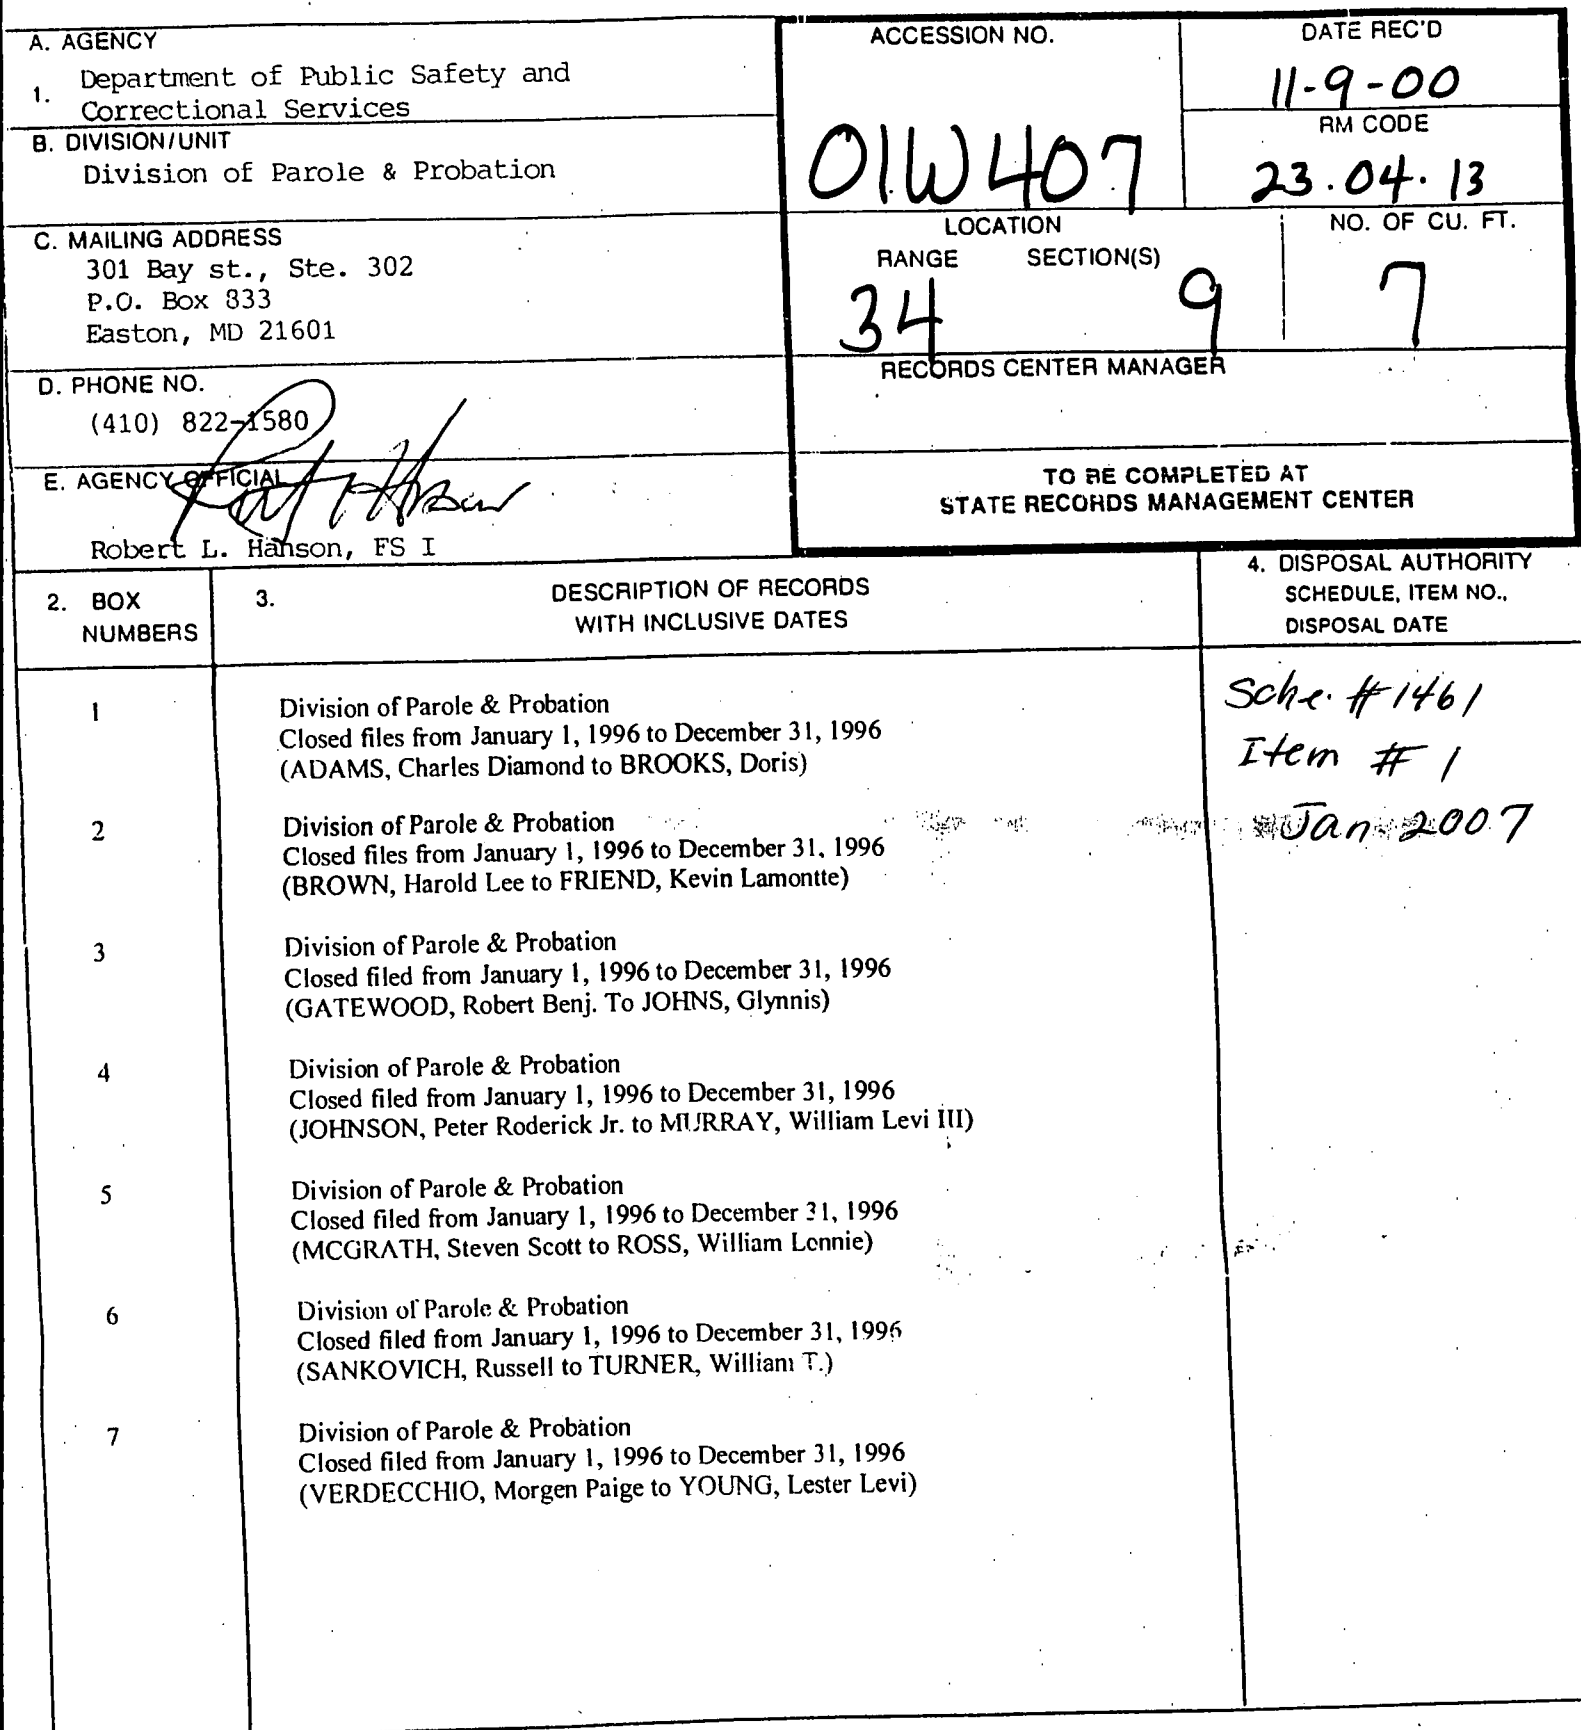 A. AGENCY
1. Department of Public Safety and
Correctional Services
B. DIVISION/UNIT
Division of Parole & Probation
C. MAILING ADDRESS
301 Bay st., Ste. 302
P.O. Box 833
Easton, MD 21601
D. PHONE NO.
(410) 822-1580
E. AGENCY OFFICIAL
Robert L. Hanson, FS I
ACCESSION NO.
01W407
DATE REC'D
11-9-00
RM CODE
23.04.13
LOCATION
RANGE SECTION(S)
34 9
NO. OF CU. FT.
7
RECORDS CENTER MANAGER
TO BE COMPLETED AT
STATE RECORDS MANAGEMENT CENTER
2. BOX
NUMBERS
3. DESCRIPTION OF RECORDS
WITH INCLUSIVE DATES
4. DISPOSAL AUTHORITY
SCHEDULE, ITEM NO.,
DISPOSAL DATE
Sche. #1461
Item # 1
Jan 2007
1 Division of Parole & Probation
Closed files from January 1, 1996 to December 31, 1996
(ADAMS, Charles Diamond to BROOKS, Doris)
2 Division of Parole & Probation
Closed files from January 1, 1996 to December 31, 1996
(BROWN, Harold Lee to FRIEND, Kevin Lamontte)
3 Division of Parole & Probation
Closed filed from January 1, 1996 to December 31, 1996
(GATEWOOD, Robert Benj. To JOHNS, Glynnis)
4 Division of Parole & Probation
Closed filed from January 1, 1996 to December 31, 1996
(JOHNSON, Peter Roderick Jr. to MURRAY, William Levi III)
5 Division of Parole & Probation
Closed filed from January 1, 1996 to December 31, 1996
(MCGRATH, Steven Scott to ROSS, William Lennie)
6 Division of Parole & Probation
Closed filed from January 1, 1996 to December 31, 1996
(SANKOVICH, Russell to TURNER, William T.)
7 Division of Parole & Probation
Closed filed from January 1, 1996 to December 31, 1996
(VERDECCHIO, Morgen Paige to YOUNG, Lester Levi)